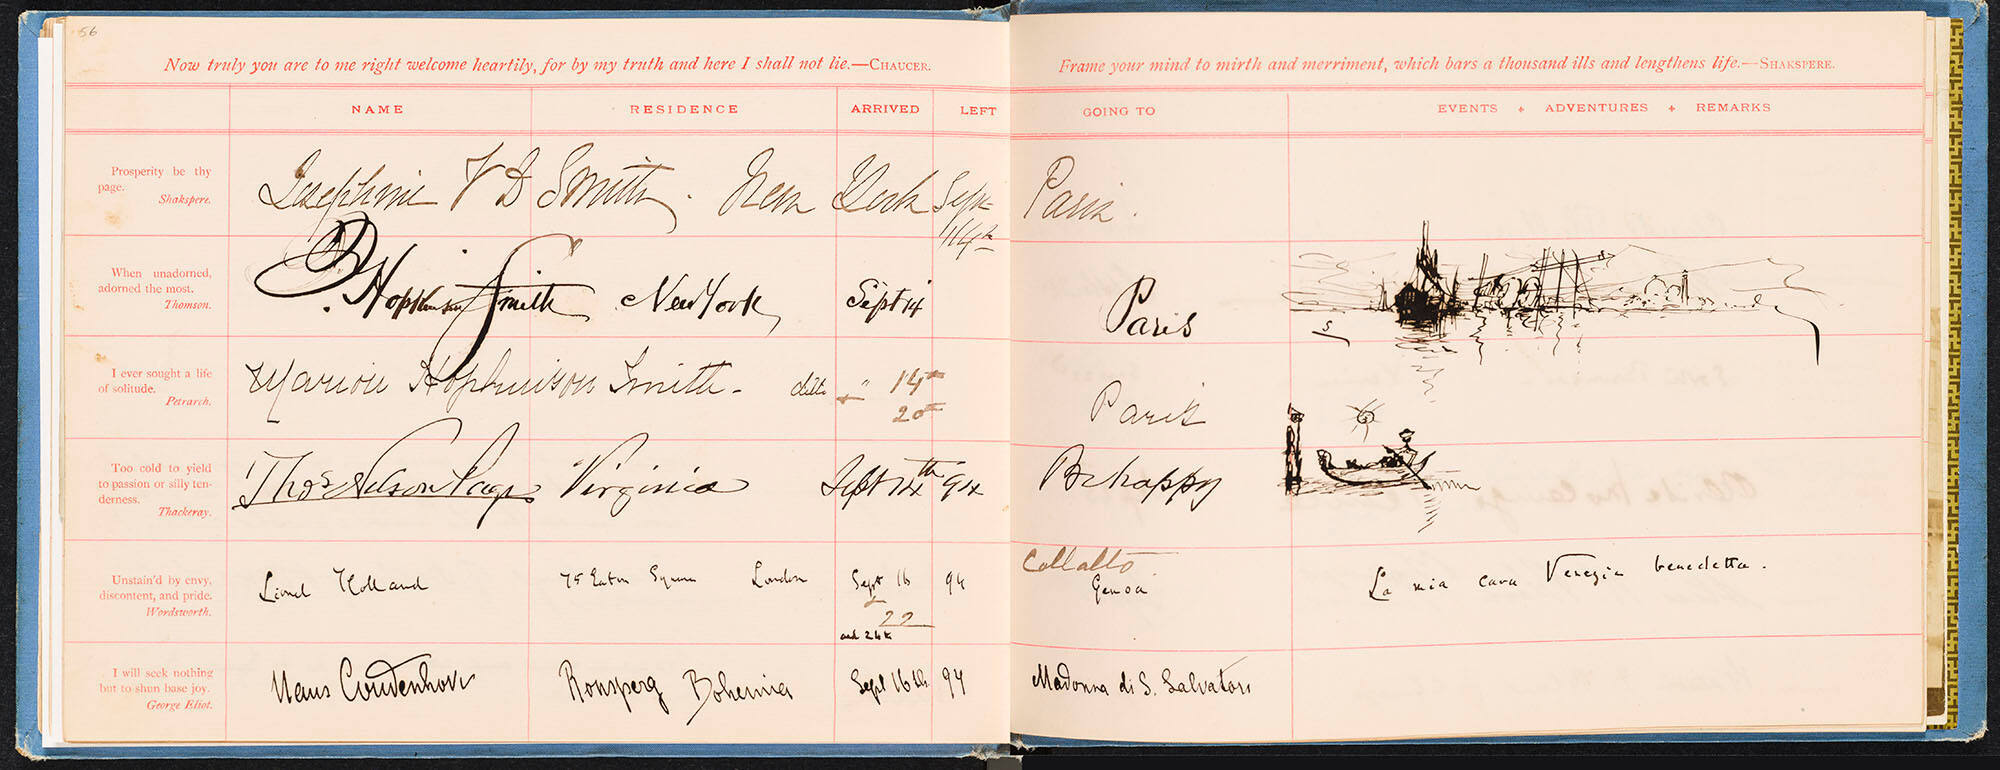 56
Now truly you are to me right welcome heartily, for by my truth and here I shall not lie.—CHAUCER.
NAME RESIDENCE ARRIVED LEFT
Prosperity be thy
page.
Shakspere.
Josephine V D Smith. New York Sept
14th
When unadorned,
adorned the most.
Thomson.
F. Hopkinson Smith New York Sept 14
I ever sought a life
of solitude.
Petrarch.
Marion Hopkinson Smith - ditto " 14th
20th
Too cold to yield
to passion or silly ten-
derness.
Thackeray.
Thos Nelson Page Virginia Sept
Unstain'd by envy,
discontent, and pride.
Wordsworth.
Lionel Holland 75 Eaton Square London Sept 16 94
22
and 24th
I will seek nothing
but to shun base joy.
George Eliot.
Hans Coudenhove Ronsperg Bohemia Sept 16th 94
Frame your mind to mirth and merriment, which bars a thousand ills and lengthens life.—SHAKSPERE.
GOING TO EVENTS + ADVENTURES + REMARKS
Paris.
Paris
Paris
Be happy
Collalto
Genoa La mia cara Venezia benedetta.
Madonna di S. Salvatore